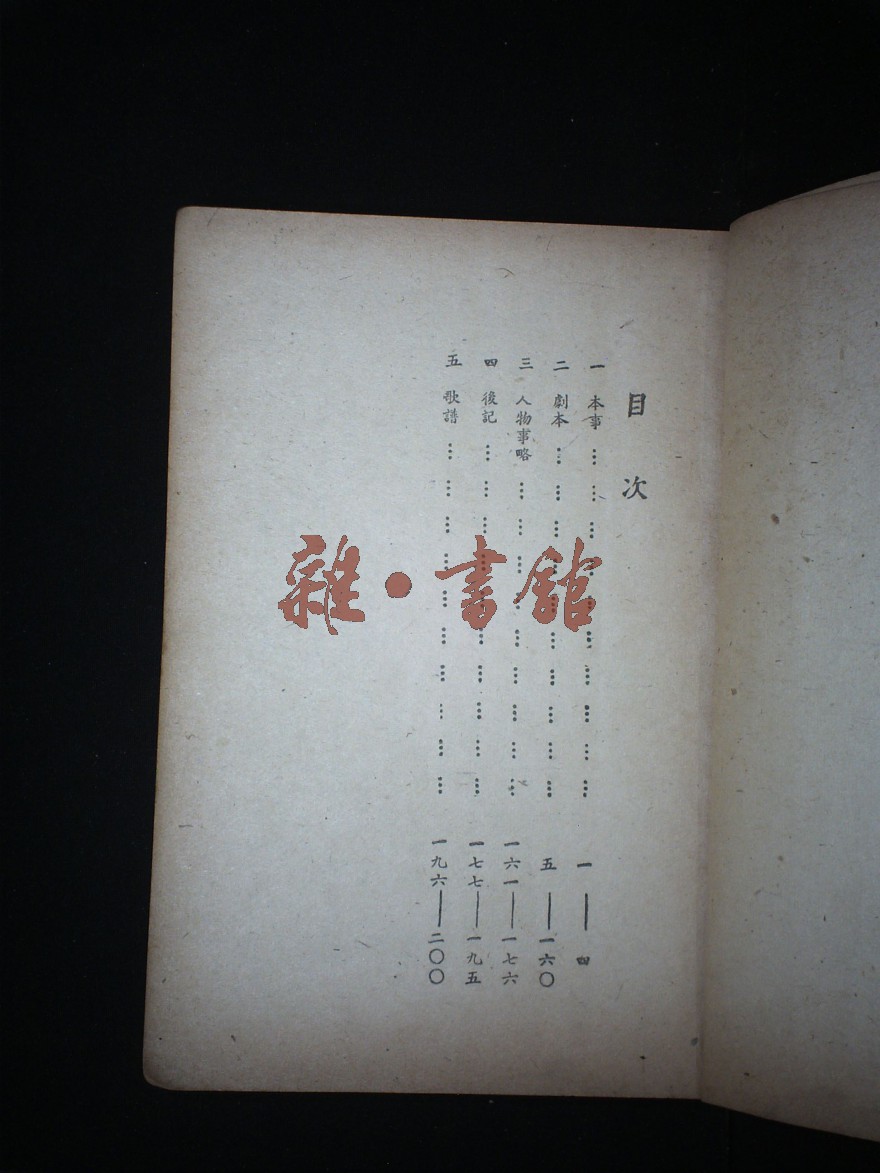 目次
一 本事 ………………………… 一——四
二 劇本 ………………………… 五——一六〇
三 人物事略 ………………………… 一六一——一七六
四 後記 ………………………… 一七七——一九五
五 歌譜 ………………………… 一九六——二〇〇
雜·書館